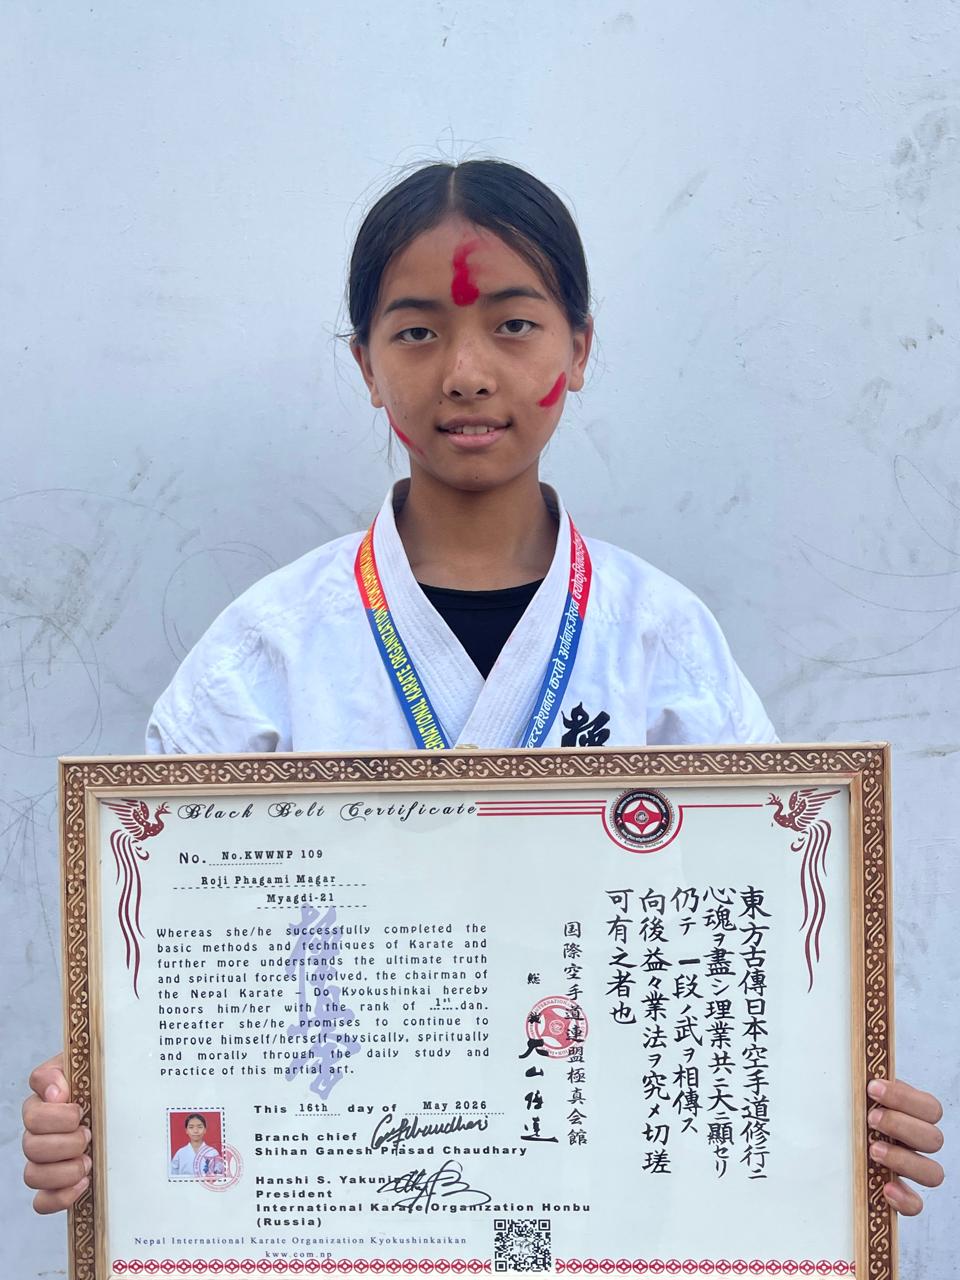 TERNATIONAL KARATE ORGANIZATION KYOKUSHINKAI
इन्टरनेशनल कराते अर्गनाइजेसन क्योकुसिनकाई
極
Black Belt Certificate
No. No.KWWNP 109
Roji Phagami Magar
Myagdi-21
Whereas she/he successfully completed the
basic methods and techniques of Karate and
further more understands the ultimate truth
and spiritual forces involved, the chairman of
the Nepal Karate – Do Kyokushinkai hereby
honors him/her with the rank of 1st dan.
Hereafter she/he promises to continue to
improve himself/herself physically, spiritually
and morally through the daily study and
practice of this martial art.
This 16th day of May 2026
Branch chief
Shihan Ganesh Prasad Chaudhary
Hanshi S. Yakunin
President
International Karate Organization Honbu
(Russia)
Nepal International Karate Organization Kyokushinkaikan
kww.com.np
極真会
東方古傳日本空手道修行ニ
心魂ヲ盡シ理業共ニ大ニ顯セリ
仍テ 一段ノ武ヲ相傳ス
向後益々業法ヲ究メ切瑳
可有之者也
国際空手道連盟極真会館
総裁 大山倍達